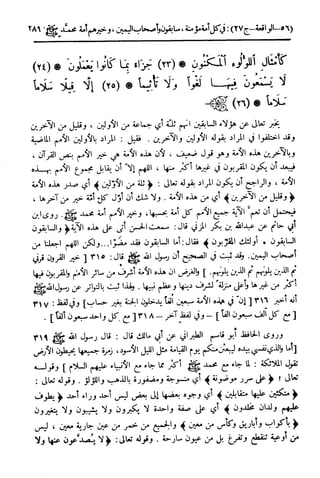 (٥٦ - الواقعة - ج٢٧) : في كل أمة مؤمنة ، سابقون وأصحاب اليمين ، وخيرهم أمة محمد ﷺ ٢٨٩
كَأَمْثَالِ اللُّؤْلُؤِ الْمَكْنُونِ * (٢٣) جَزَاءً بِمَا كَانُوا يَعْمَلُونَ * (٢٤)
لَا يَسْمَعُونَ فِيهَا لَغْوًا وَلَا تَأْثِيمًا * (٢٥) إِلَّا قِيلًا سَلَامًا
سَلَامًا * (٢٦)
يخبر تعالى عن هؤلاء السابقين انهم ثلة أي جماعة من الأولين ، وقليل من الآخرين
وقد اختلفوا في المراد بقوله الأولين والآخرين . فقيل : المراد بالأولين الأمم الماضية
وبالآخرين هذه الأمة وهو قول ضعيف ، لأن هذه الأمة هي خير الأمم بنص القرآن ،
فيبعد أن يكون المقربون في غيرها أكثر منها ، اللهم إلا أن يقابل مجموع الأمم بهذه
الأمة ، والراجح أن يكون المراد بقوله تعالى : ﴿ ثلة من الأولين ﴾ أي صدر هذه الأمة
﴿ وقليل من الآخرين ﴾ أي من هذه الأمة . ولا شك أن أول كل أمة خير من آخرها ،
فيحتمل أن تعم الآية جميع الأمم كل أمة بحسبها ، وخير الأمم أمة محمد ﷺ . روى ابن
أبي حاتم عن عبدالله بن بكر المزني قال : سمعت الحسن أتى على هذه الآية ﴿ والسابقون
السابقون * أولئك المقربون ﴾ فقال : أما السابقون فقد مضوا ... ولكن اللهم اجعلنا من
أصحاب اليمين . وقد ثبت في الصحيح أن رسول الله ﷺ قال : ٣١٥ [ خير القرون قرني
ثم الذين يلونهم ثم الذين يلونهم . ] والغرض ان هذه الأمة أشرف من سائر الأمم والمقربون فيها
أكثر من غيرها وأعلى منزلة لشرف دينها وعظم نبيها . ولهذا ثبت بالتواتر عن رسول الله ﷺ
أنه أخبر ٣١٦ [ ان في هذه الأمة سبعين ألفاً يدخلون الجنة بغير حساب ] وفي لفظ : ٣١٧
[ مع كل ألف سبعون ألفاً ] – وفي لفظ آخر – ٣١٨ [ مع كل واحد سبعون ألفاً . ]
وروى الحافظ أبو قاسم الطبراني عن أبي مالك قال : قال رسول الله ﷺ ٣١٩
[ أما والذي نفسي بيده ليبعثن منكم يوم القيامة مثل الليل الأسود ، زمرة جميعها يحيطون الأرض
تقول الملائكة : لما جاء مع محمد ﷺ أكثر مما جاء مع الأنبياء عليهم السلام ] وقوله
تعالى : ﴿ على سرر موضونة ﴾ أي منسوجة ومضفورة بالذهب واللؤلؤ . وقوله تعالى :
﴿ متكئين عليها متقابلين ﴾ أي وجوه بعضها إلى بعض ليس أحد وراء أحد ﴿ يطوف
عليهم ولدان مخلدون ﴾ أي على صفة واحدة لا يكبرون ولا يشيبون ولا يتغيرون
﴿ بأكواب وأباريق وكأس من معين ﴾ والجميع من خمر من عين جارية معين ، ليس
من أوعية تنقطع وتفرغ بل من عيون سارحة . وقوله تعالى: ﴿ لا يصدعون عنها ولا